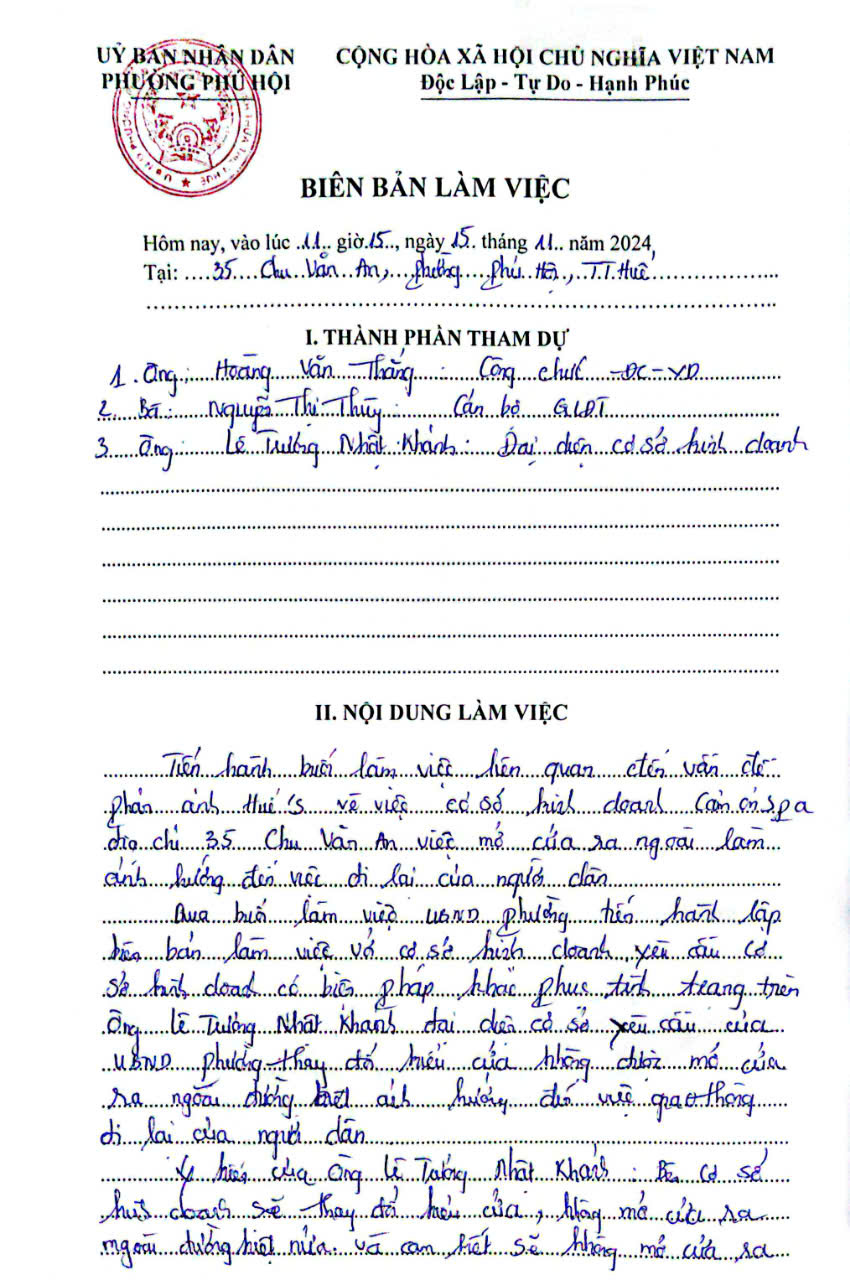 UỶ BAN NHÂN DÂN
PHƯỜNG PHÚ HỘI
CỘNG HÒA XÃ HỘI CHỦ NGHĨA VIỆT NAM
Độc Lập - Tự Do - Hạnh Phúc
BIÊN BẢN LÀM VIỆC
Hôm nay, vào lúc 11 giờ 15, ngày 15 tháng 11 năm 2024,
Tại: 35 Chu Văn An, phường Phú Hội, TT Huế
I. THÀNH PHẦN THAM DỰ
1. Ông: Hoàng Văn Thắng: Công chức ĐC-XD
2. Bà: Nguyễn Thị Thùy: Cán bộ QLĐT
3. Ông: Lê Trường Nhật Khánh: Đại diện cơ sở kinh doanh
II. NỘI DUNG LÀM VIỆC
Tiến hành buổi làm việc liên quan đến vấn đề
phản ánh Huế's về việc cơ sở kinh doanh Cảm ơn spa
địa chỉ 35 Chu Văn An việc mở cửa ra ngoài làm
ảnh hưởng đến việc đi lại của người dân
Qua buổi làm việc UBND phường tiến hành lập
biên bản làm việc với cơ sở kinh doanh yêu cầu cơ
sở kinh doanh có biện pháp khắc phục tình trạng trên
Ông Lê Trường Nhật Khánh đại diện cơ sở yêu cầu của
UBND phường thay đổi kiểu cửa không được mở cửa
ra ngoài đường ảnh hưởng đến việc giao thông
đi lại của người dân
Ý kiến của Ông Lê Trường Nhật Khánh: Bên cơ sở
kinh doanh sẽ thay đổi kiểu cửa, không mở cửa ra
ngoài đường kiệt nữa. và cam kết sẽ không mở cửa ra